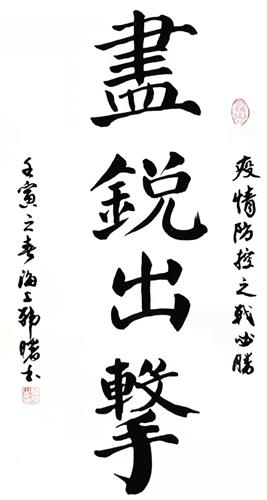 疫情防控之戰必勝
盡銳出擊
壬寅之春海上韓曙書